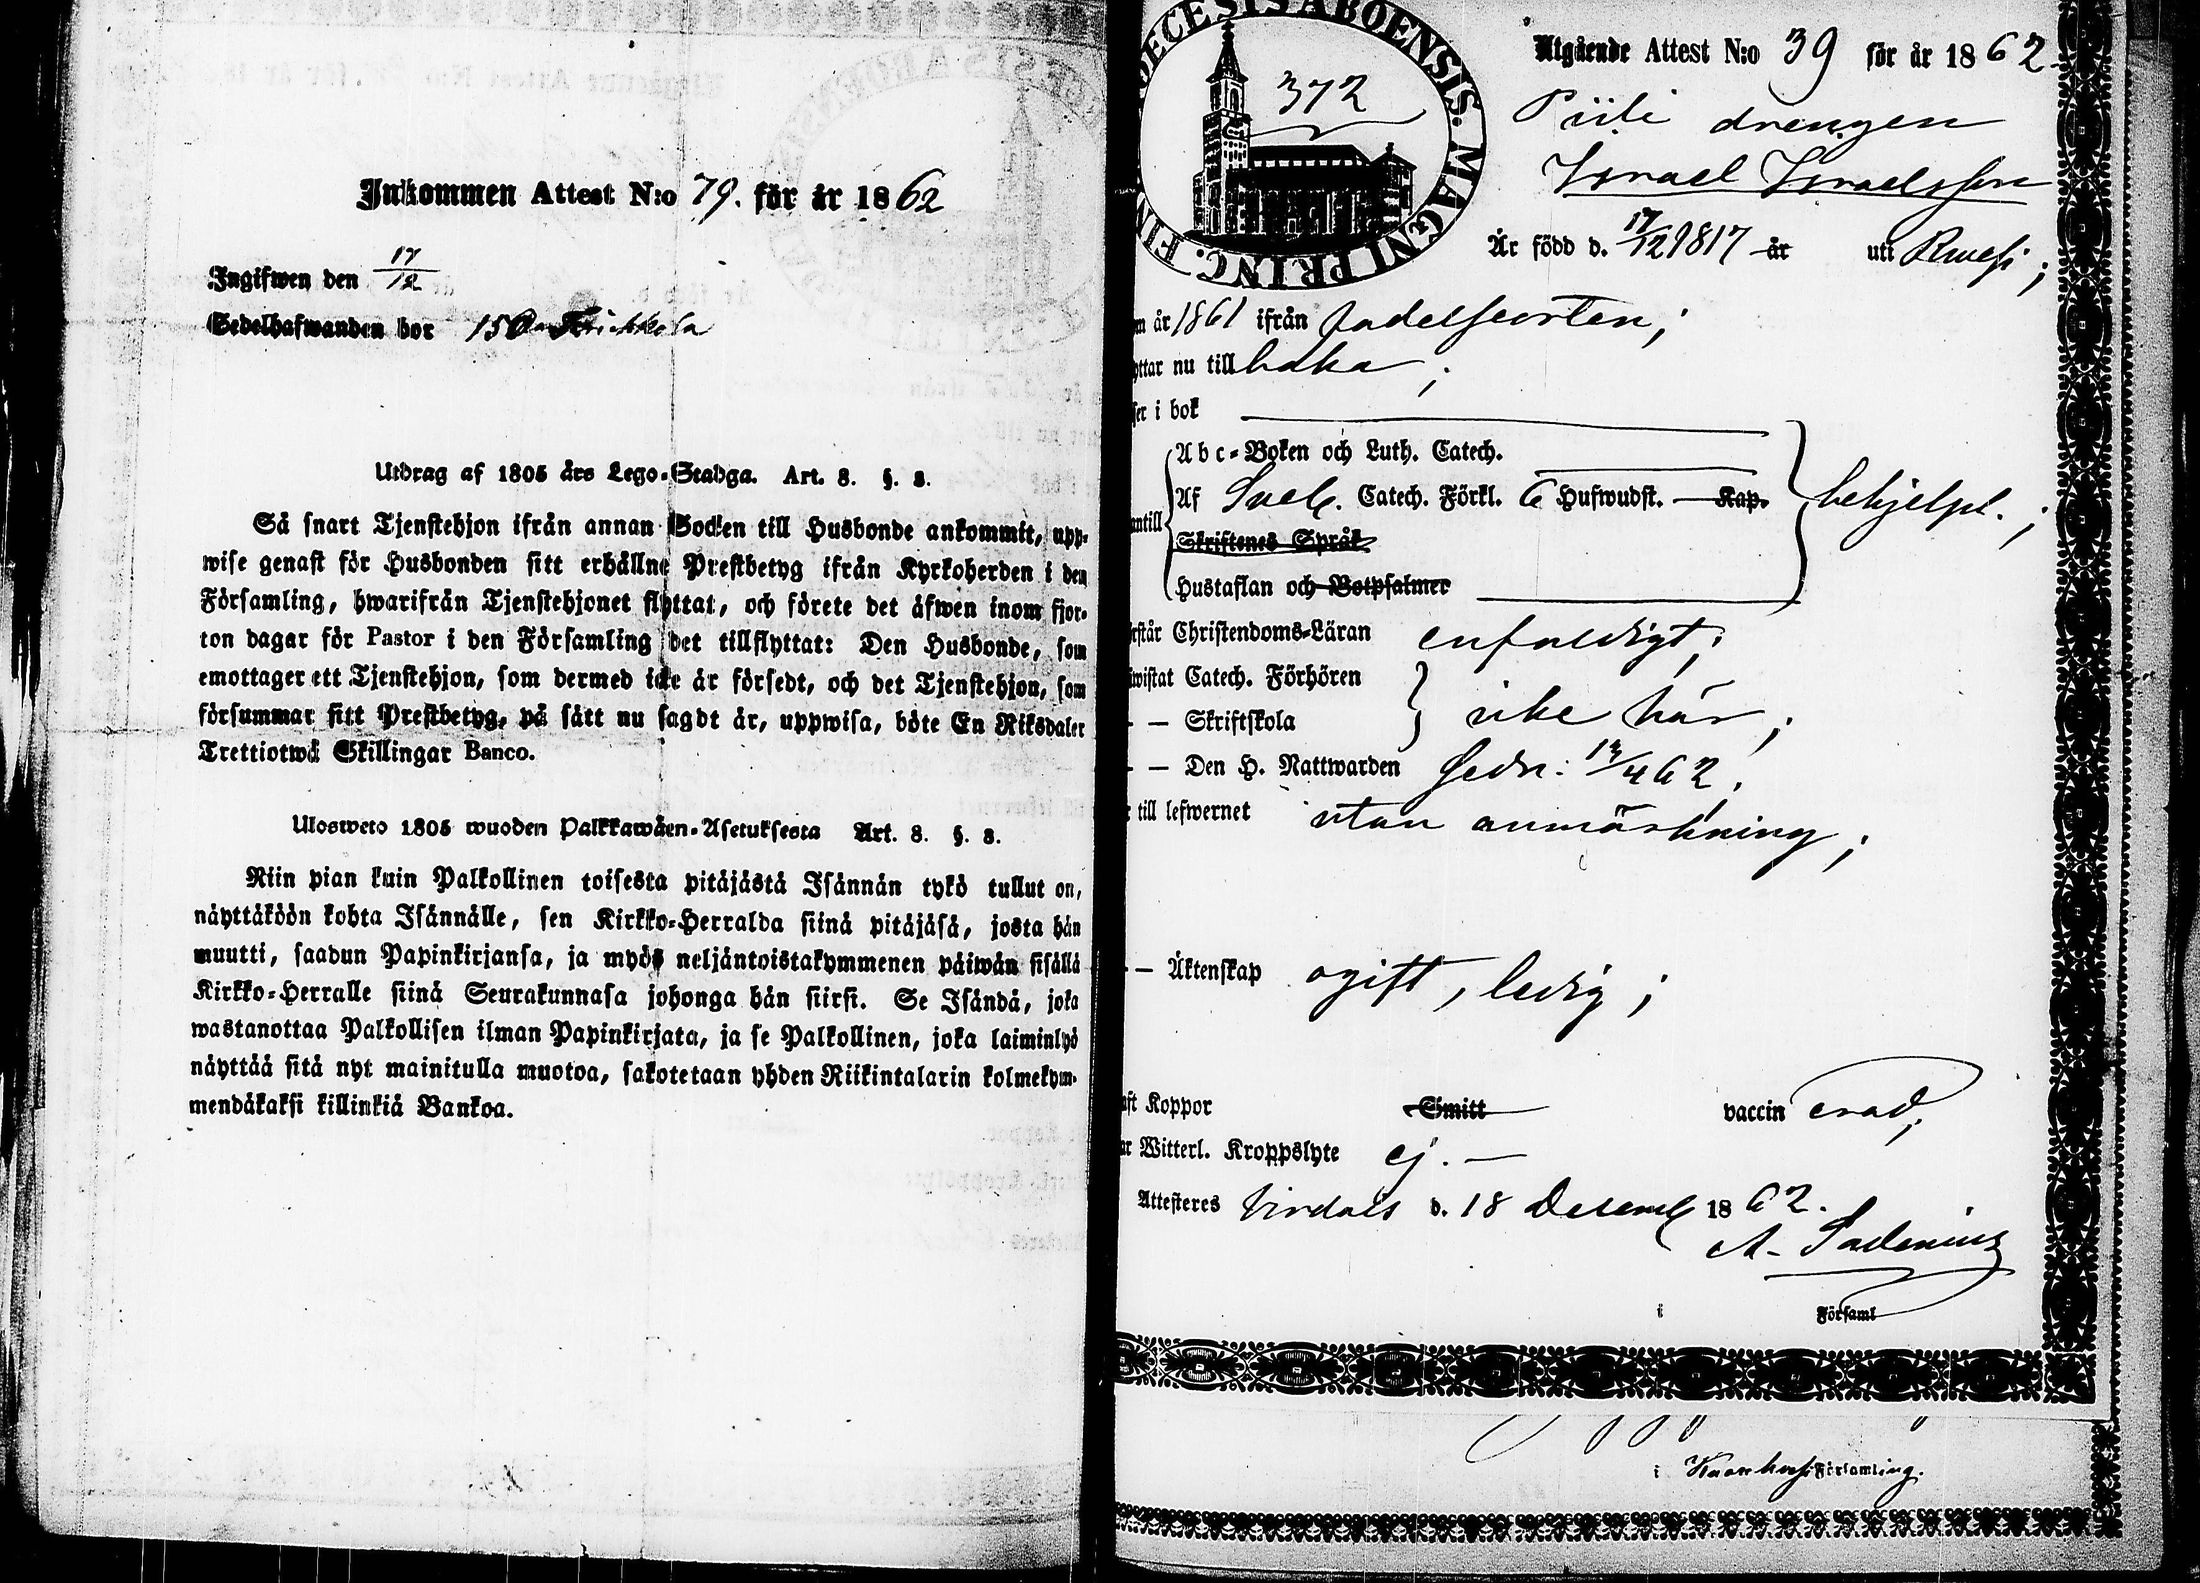 Inkommen Attest N:o 79. för år 1862
Ingifwen den 17/12
Sedelhafwanden bor 150
Utdrag af 1805 års Lego-Stadga. Art. 8. §. 8.
Så snart Tjenstehjon ifrån annan Socken till Husbonde ankommit, upp-
wise genast för Husbonden sitt erhållne Prestbetyg ifrån Kyrkoherden i den
Församling, hwarifrån Tjenstehjonet flyttat, och förete det äfwen inom fjor-
ton dagar för Pastor i den Församling det tillflyttat: Den Husbonde, som
emottager ett Tjenstehjon, som dermed icke är försedt, och det Tjenstehjon, som
försummar sitt Prestbetyg, på sätt nu sagdt är, uppwisa, böte En Riksdaler
Trettiotwå Skillingar Banco.
Ulosweto 1805 wuoden Palkkawäen-Asetuksesta Art. 8. §. 8.
Niin pian kuin Palkollinen toisesta pitäjästä Isännän tykö tullut on,
näyttäköön kohta Isännälle, sen Kirkko-Herralda siinä pitäjäsä, josta hän
muutti, saadun Papinkirjansa, ja myös neljäntoistakymmenen päiwän sisällä
Kirkko-Herralle siinä Seurakunnasa johonga hän siirsi. Se Isändä, joka
wastanottaa Palkollisen ilman Papinkirjata, ja se Palkollinen, joka laiminlyö
näyttää sitä nyt mainitulla muotoa, sakotetaan yhden Riikintalarin kolmekym-
mendäkaksi killinkiä Bankoa.
DECESIS ABOENSIS. MAGNI PRINC. FIN
372
Utgående Attest N:o 39 för år 1862
Piili drengen
Israel Israelsson
Är född d. 17/12 1817 år uti Ruvesi;
m år 1861 ifrån
yttar nu till baka;
ser i bok
Abc-Boken och Luth. Catech.
antill Af Sveb. Catech. Förkl. 6 Hufwudst. Kap. behjelpl.;
Skriftenes Språk
Hustaflan och Botpsalmer
rstår Christendoms-Läran enfaldigt;
iwistat Catech. Förhören
– – Skriftskola icke här;
– – Den H. Nattwarden sedn: 13/4 62.
r till lefwernet utan anmärkning;
– – Äktenskap ogift, ledig;
aft Koppor Smitt vaccin erad;
ar Witterl. Kroppslyte ej. –
Attesteres Virdois d. 18 Decemb 1862.
A. Sadenius
i Församl
i Församling.